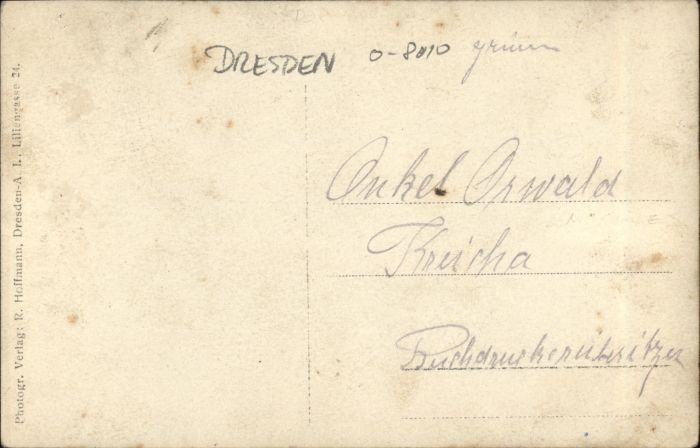 DRESDEN O-8010 grün
Onkel Oswald
Kreischa
Buchdruckereibesitzer
Photogr. Verlag: R. Hoffmann, Dresden-A. I., Liliengasse 24.